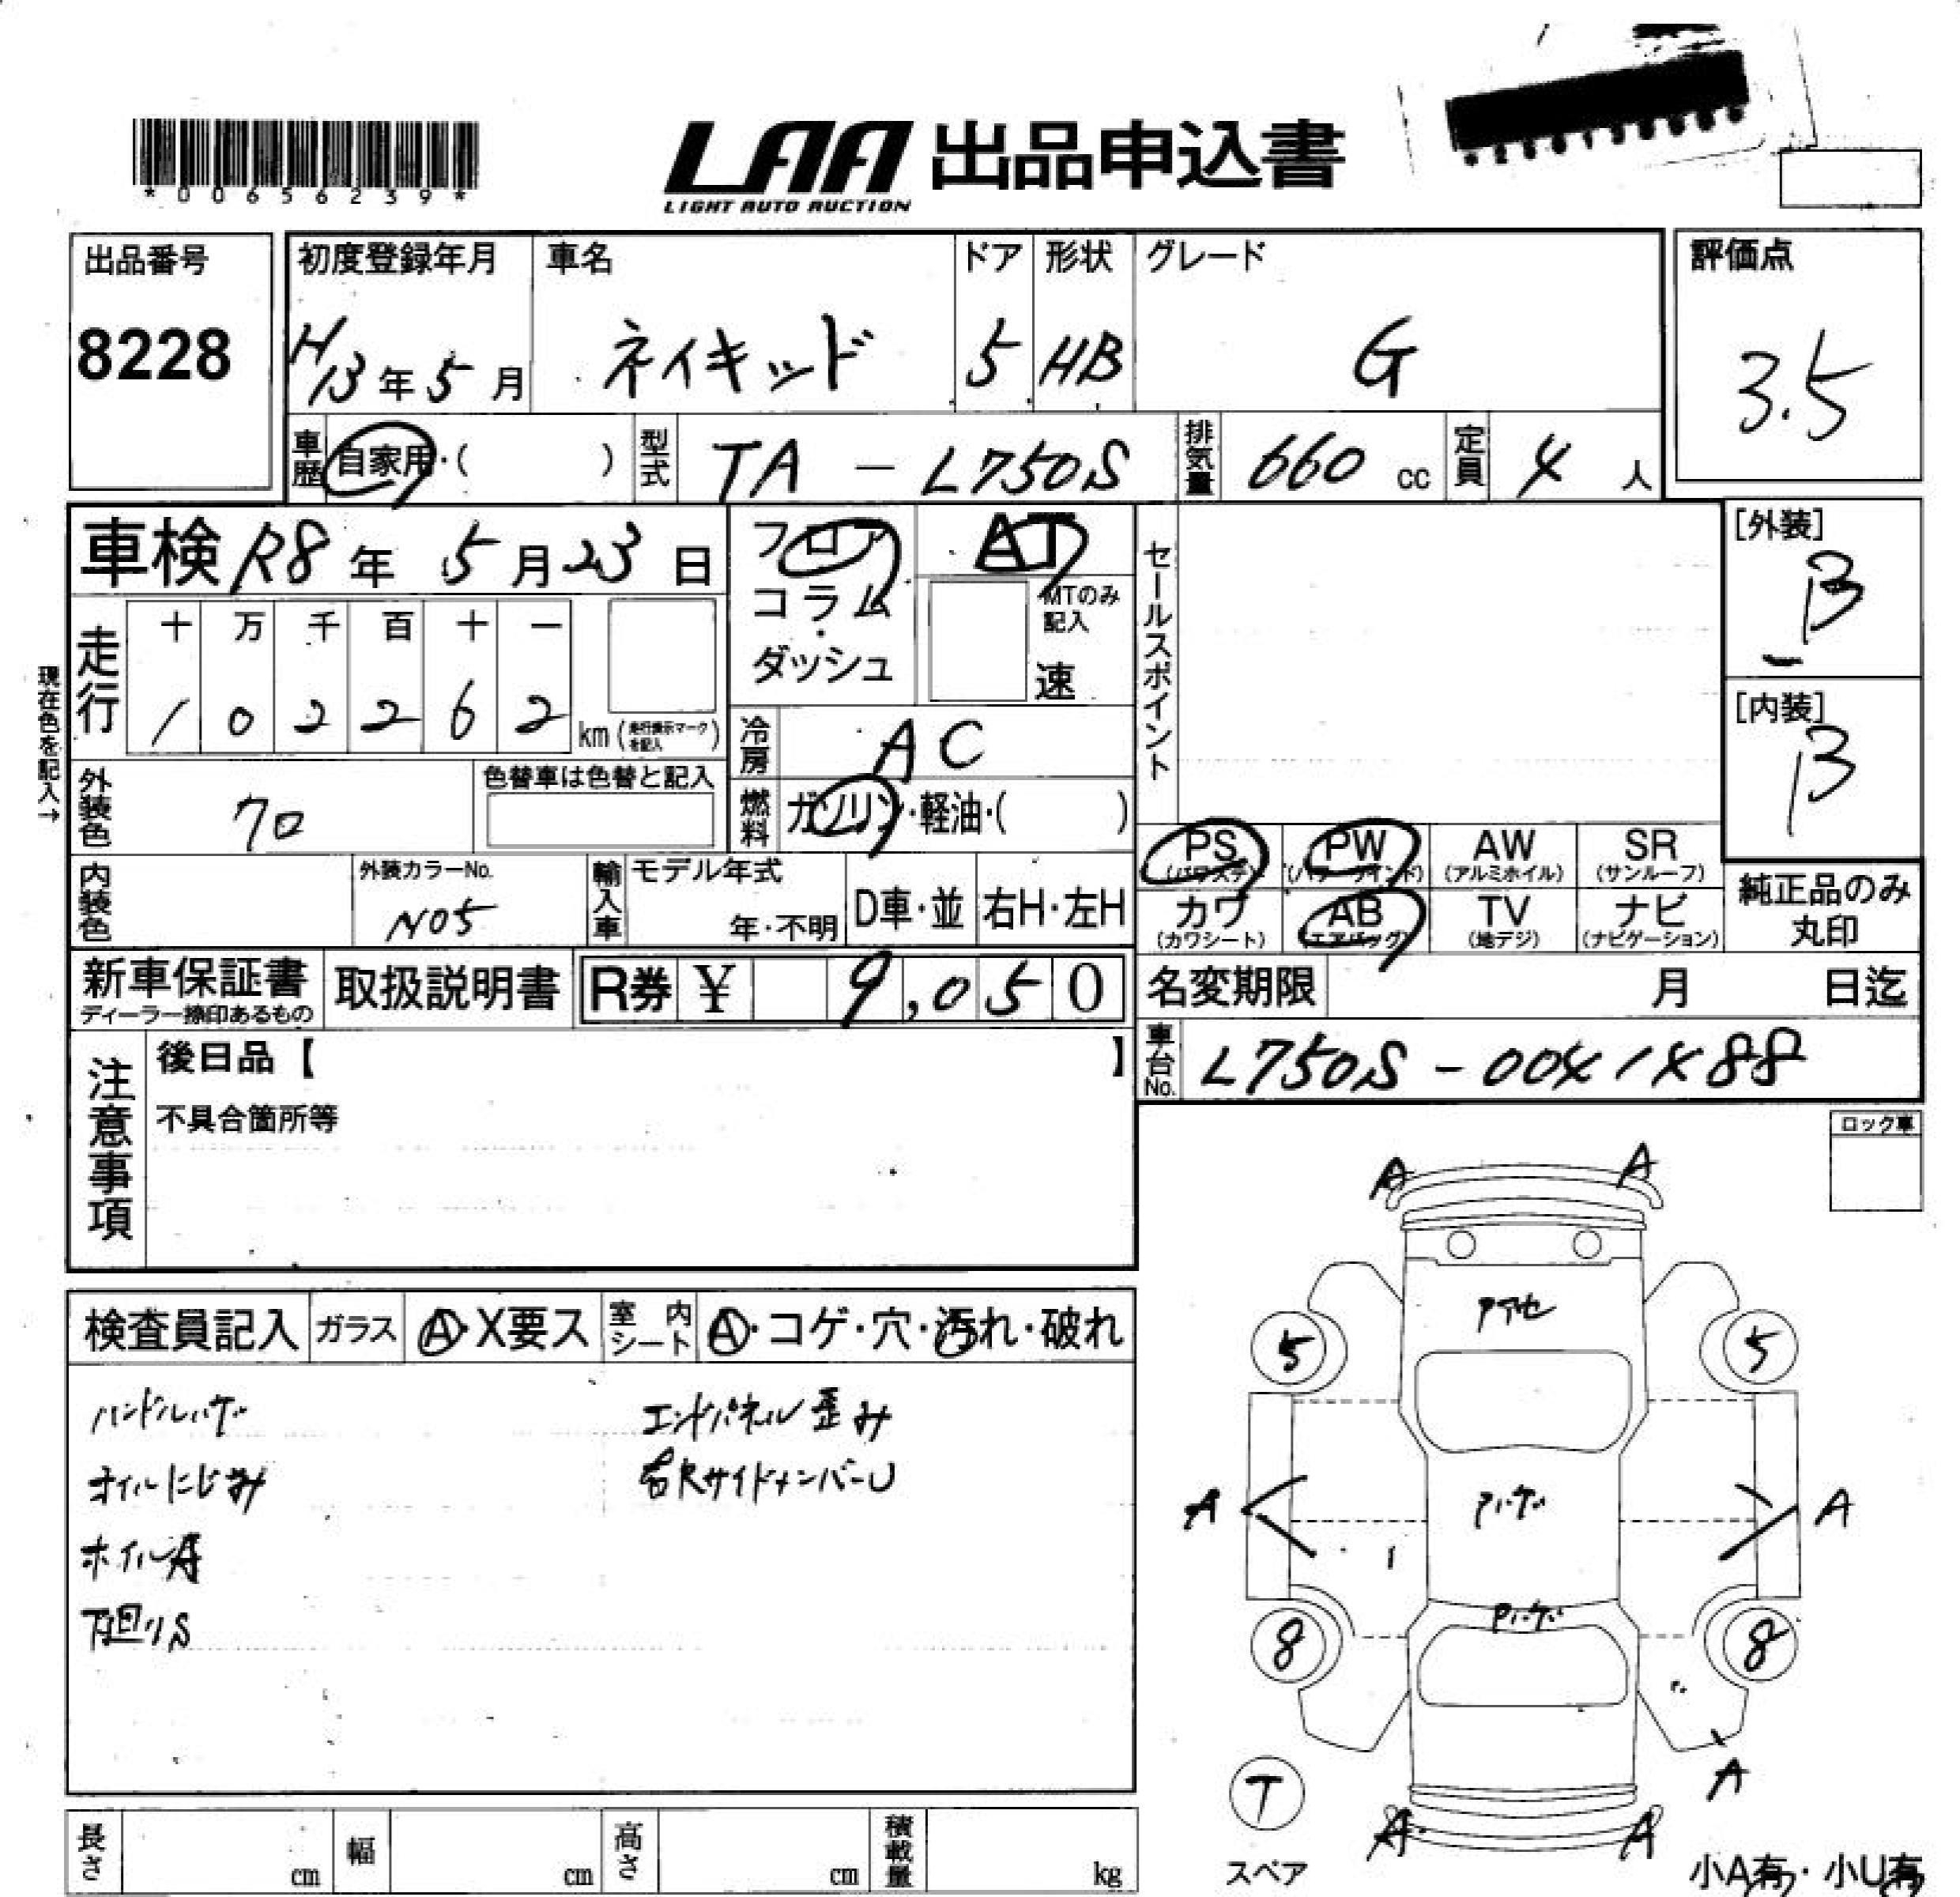 *00656239*
LAA 出品申込書
LIGHT AUTO AUCTION
出品番号
8228
初度登録年月 車名 ドア 形状 グレード
H13年5月 ネイキッド 5 HB G
評価点
3.5
車歴 自家用・( ) 型式 TA-L750S 排気量 660 cc 定員 4 人
車検 R8年 5月23日
フロア・コラム・ダッシュ
AT
MTのみ記入
速
セールスポイント
[外装]
B
[内装]
B
現在色を記入→
走行
十 万 千 百 十 一
1 0 2 2 6 2 km (走行提示マークを記入)
冷房 AC
外装色 70
色替車は色替と記入
燃料 ガソリン・軽油・( )
PS (パワステ) PW (パワーウインド) AW (アルミホイル) SR (サンルーフ)
カワ (カワシート) AB (エアバッグ) TV (地デジ) ナビ (ナビゲーション)
純正品のみ丸印
内装色
外装カラーNo.
N05
輸入車 モデル年式
年・不明 D車・並 右H・左H
新車保証書
ディーラー捺印あるもの
取扱説明書
R券 ¥ 9,050
名変期限 月 日迄
車台No. L750S-0041488
注意事項
後日品【 】
不具合箇所等
ロック車
検査員記入 ガラス A・X要ス 室内シート A・コゲ・穴・汚れ・破れ
ハンドルハゲ
オイルにじみ
ホイルA
下廻りS
エンドパネル歪み
右RサイドメンバーU
A A
アアセ
5 5
A A
Pハゲ
Pハゲ
8 8
A
T
スペア
A A
小A有・小U有
長さ cm 幅 cm 高さ cm 積載量 kg